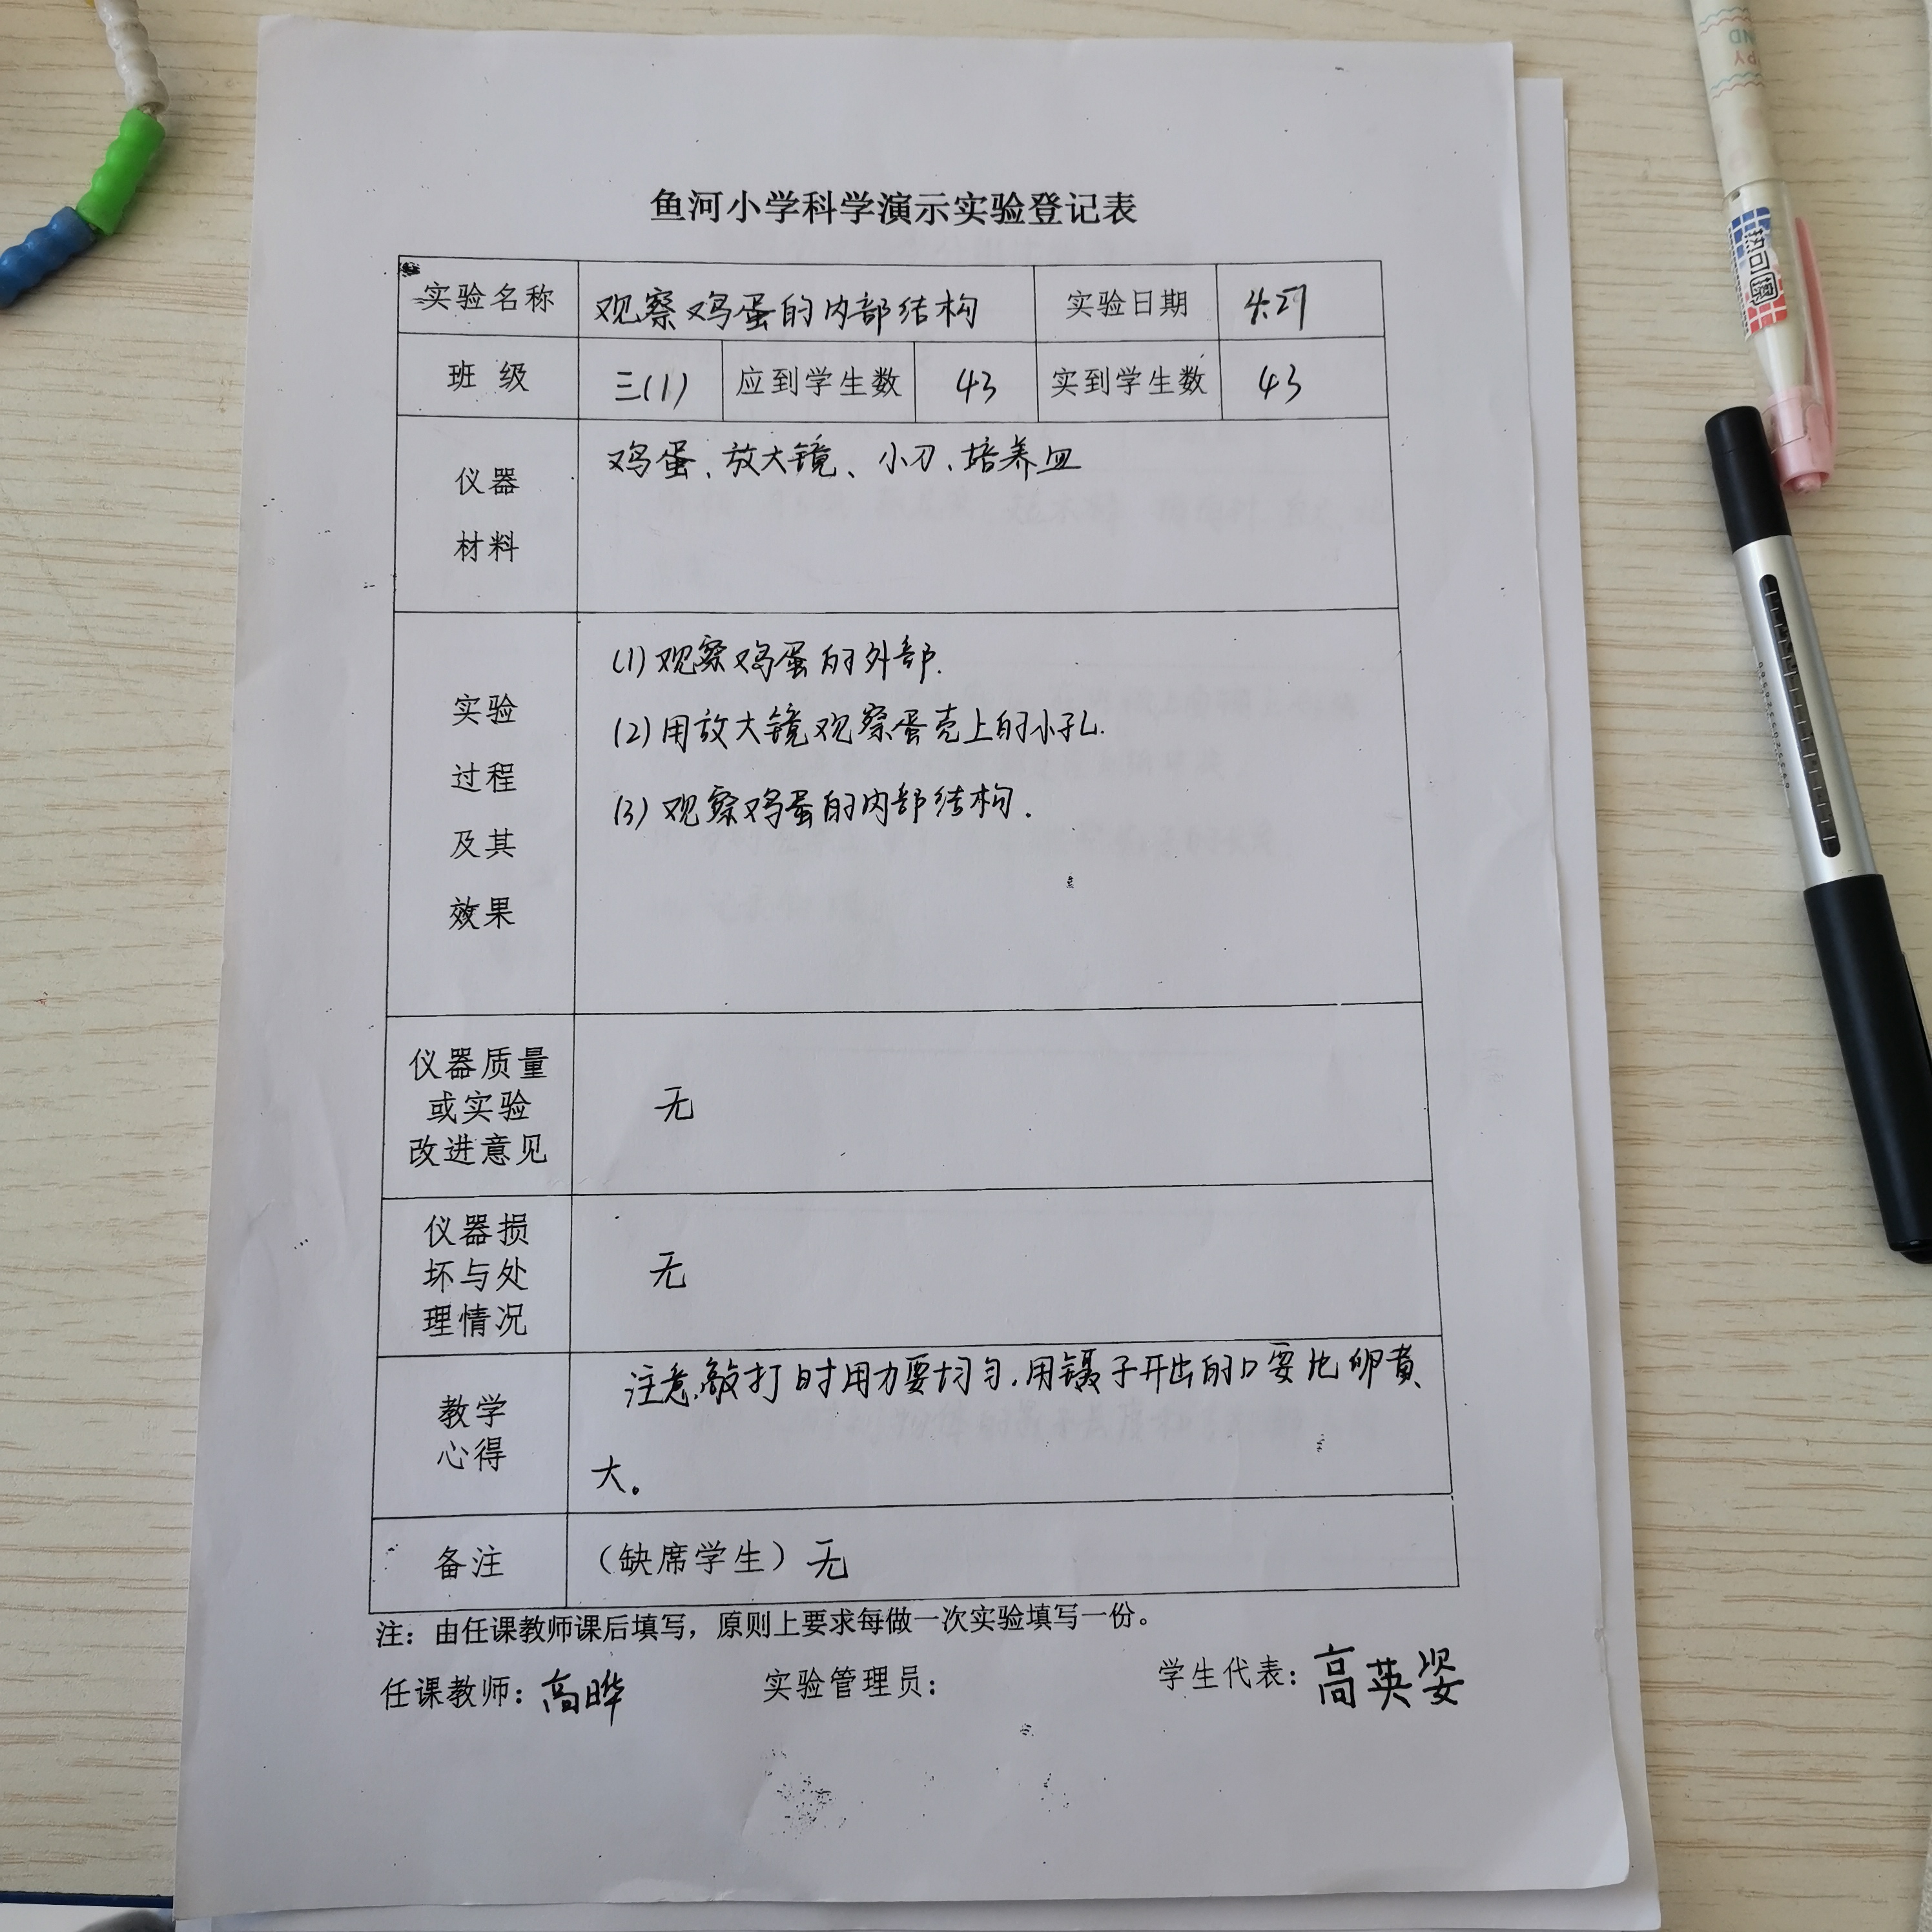 鱼河小学科学演示实验登记表
实验名称 观察鸡蛋的内部结构 实验日期 4.27
班 级 三(1) 应到学生数 43 实到学生数 43
仪器
材料
鸡蛋、放大镜、小刀、培养皿
实验
过程
及其
效果
(1) 观察鸡蛋的外部.
(2) 用放大镜观察蛋壳上的小孔.
(3) 观察鸡蛋的内部结构.
仪器质量
或实验
改进意见
无
仪器损
坏与处
理情况
无
教学
心得
注意敲打时用力要均匀,用镊子开出的口要比卵黄
大。
备注 （缺席学生）无
注：由任课教师课后填写，原则上要求每做一次实验填写一份。
任课教师：高晔 实验管理员： 学生代表：高英姿
热可擦